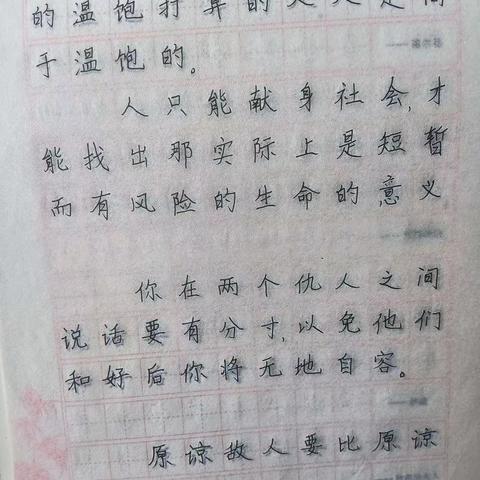 的温饱打算的
于温饱的。
人只能献身社会,才
能找出那实际上是短暂
而有风险的生命的意义
你在两个仇人之间
说话要有分寸,以免他们
和好后你将无地自容。
原谅敌人要比原谅